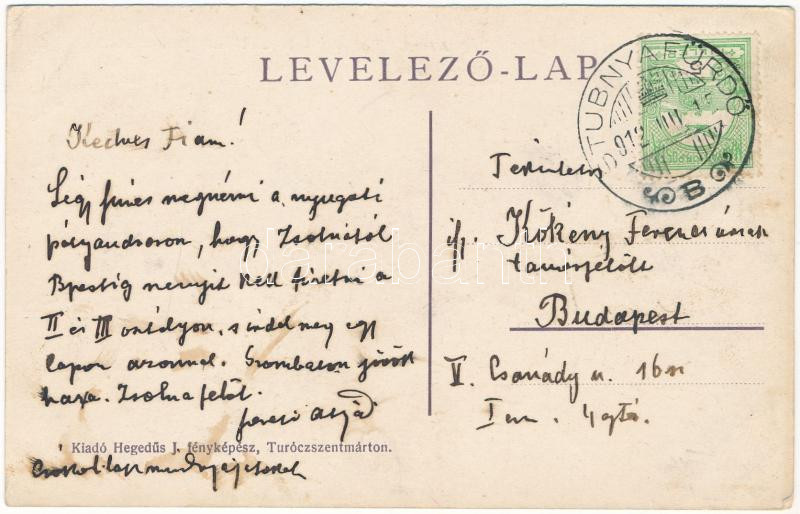 LEVELEZŐ-LAP
STUBNYAFÜRDŐ
912
B
Kedves Fiam!
Légy szíves megnézni a nyugati
pályaudvaron, hogy Zsolnától
Bpestig mennyit kell fizetni a
II és III osztályon, s írd meg egy
lapon azonnal. Szombaton jövök
haza. Zsolna felől.
szerető Atyád
Csókollak mindnyájatokat
Kiadó Hegedűs J. fényképész, Turóczszentmárton.
Tekintetes
ifj. Kökény Ferencz úrnak
tanárjelölt
Budapest
V. Csanády u. 16
I em. 4 ajtó.